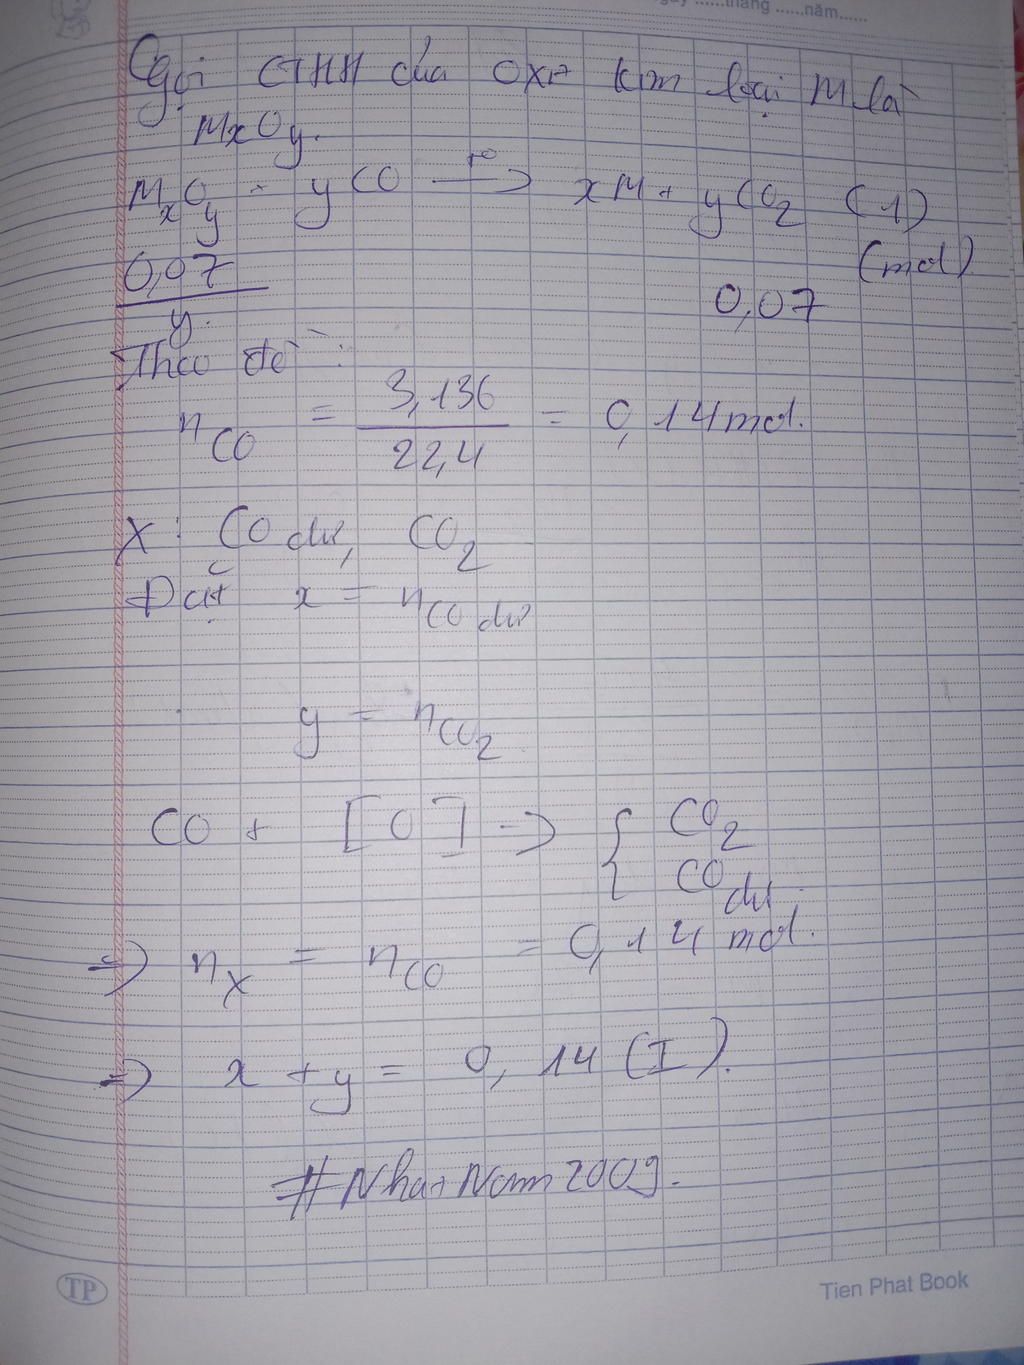 ngày ......tháng ......năm......
Gọi CTHH của oxit kim loại M là
MxOy.
MxOy + yCO t° → xM + yCO2 (1)
(mol)
0,07/y 0,07
Theo đề:
nCO = 3,136/22,4 = 0,14 mol.
X: CO dư, CO2
Đặt x = nCO dư
y = nCO2
CO + [O] → { CO2
CO dư.
⇒ nX = nCO = 0,14 mol.
⇒ x + y = 0,14 (I).
#NhatNam2009.
TP
Tien Phat Book